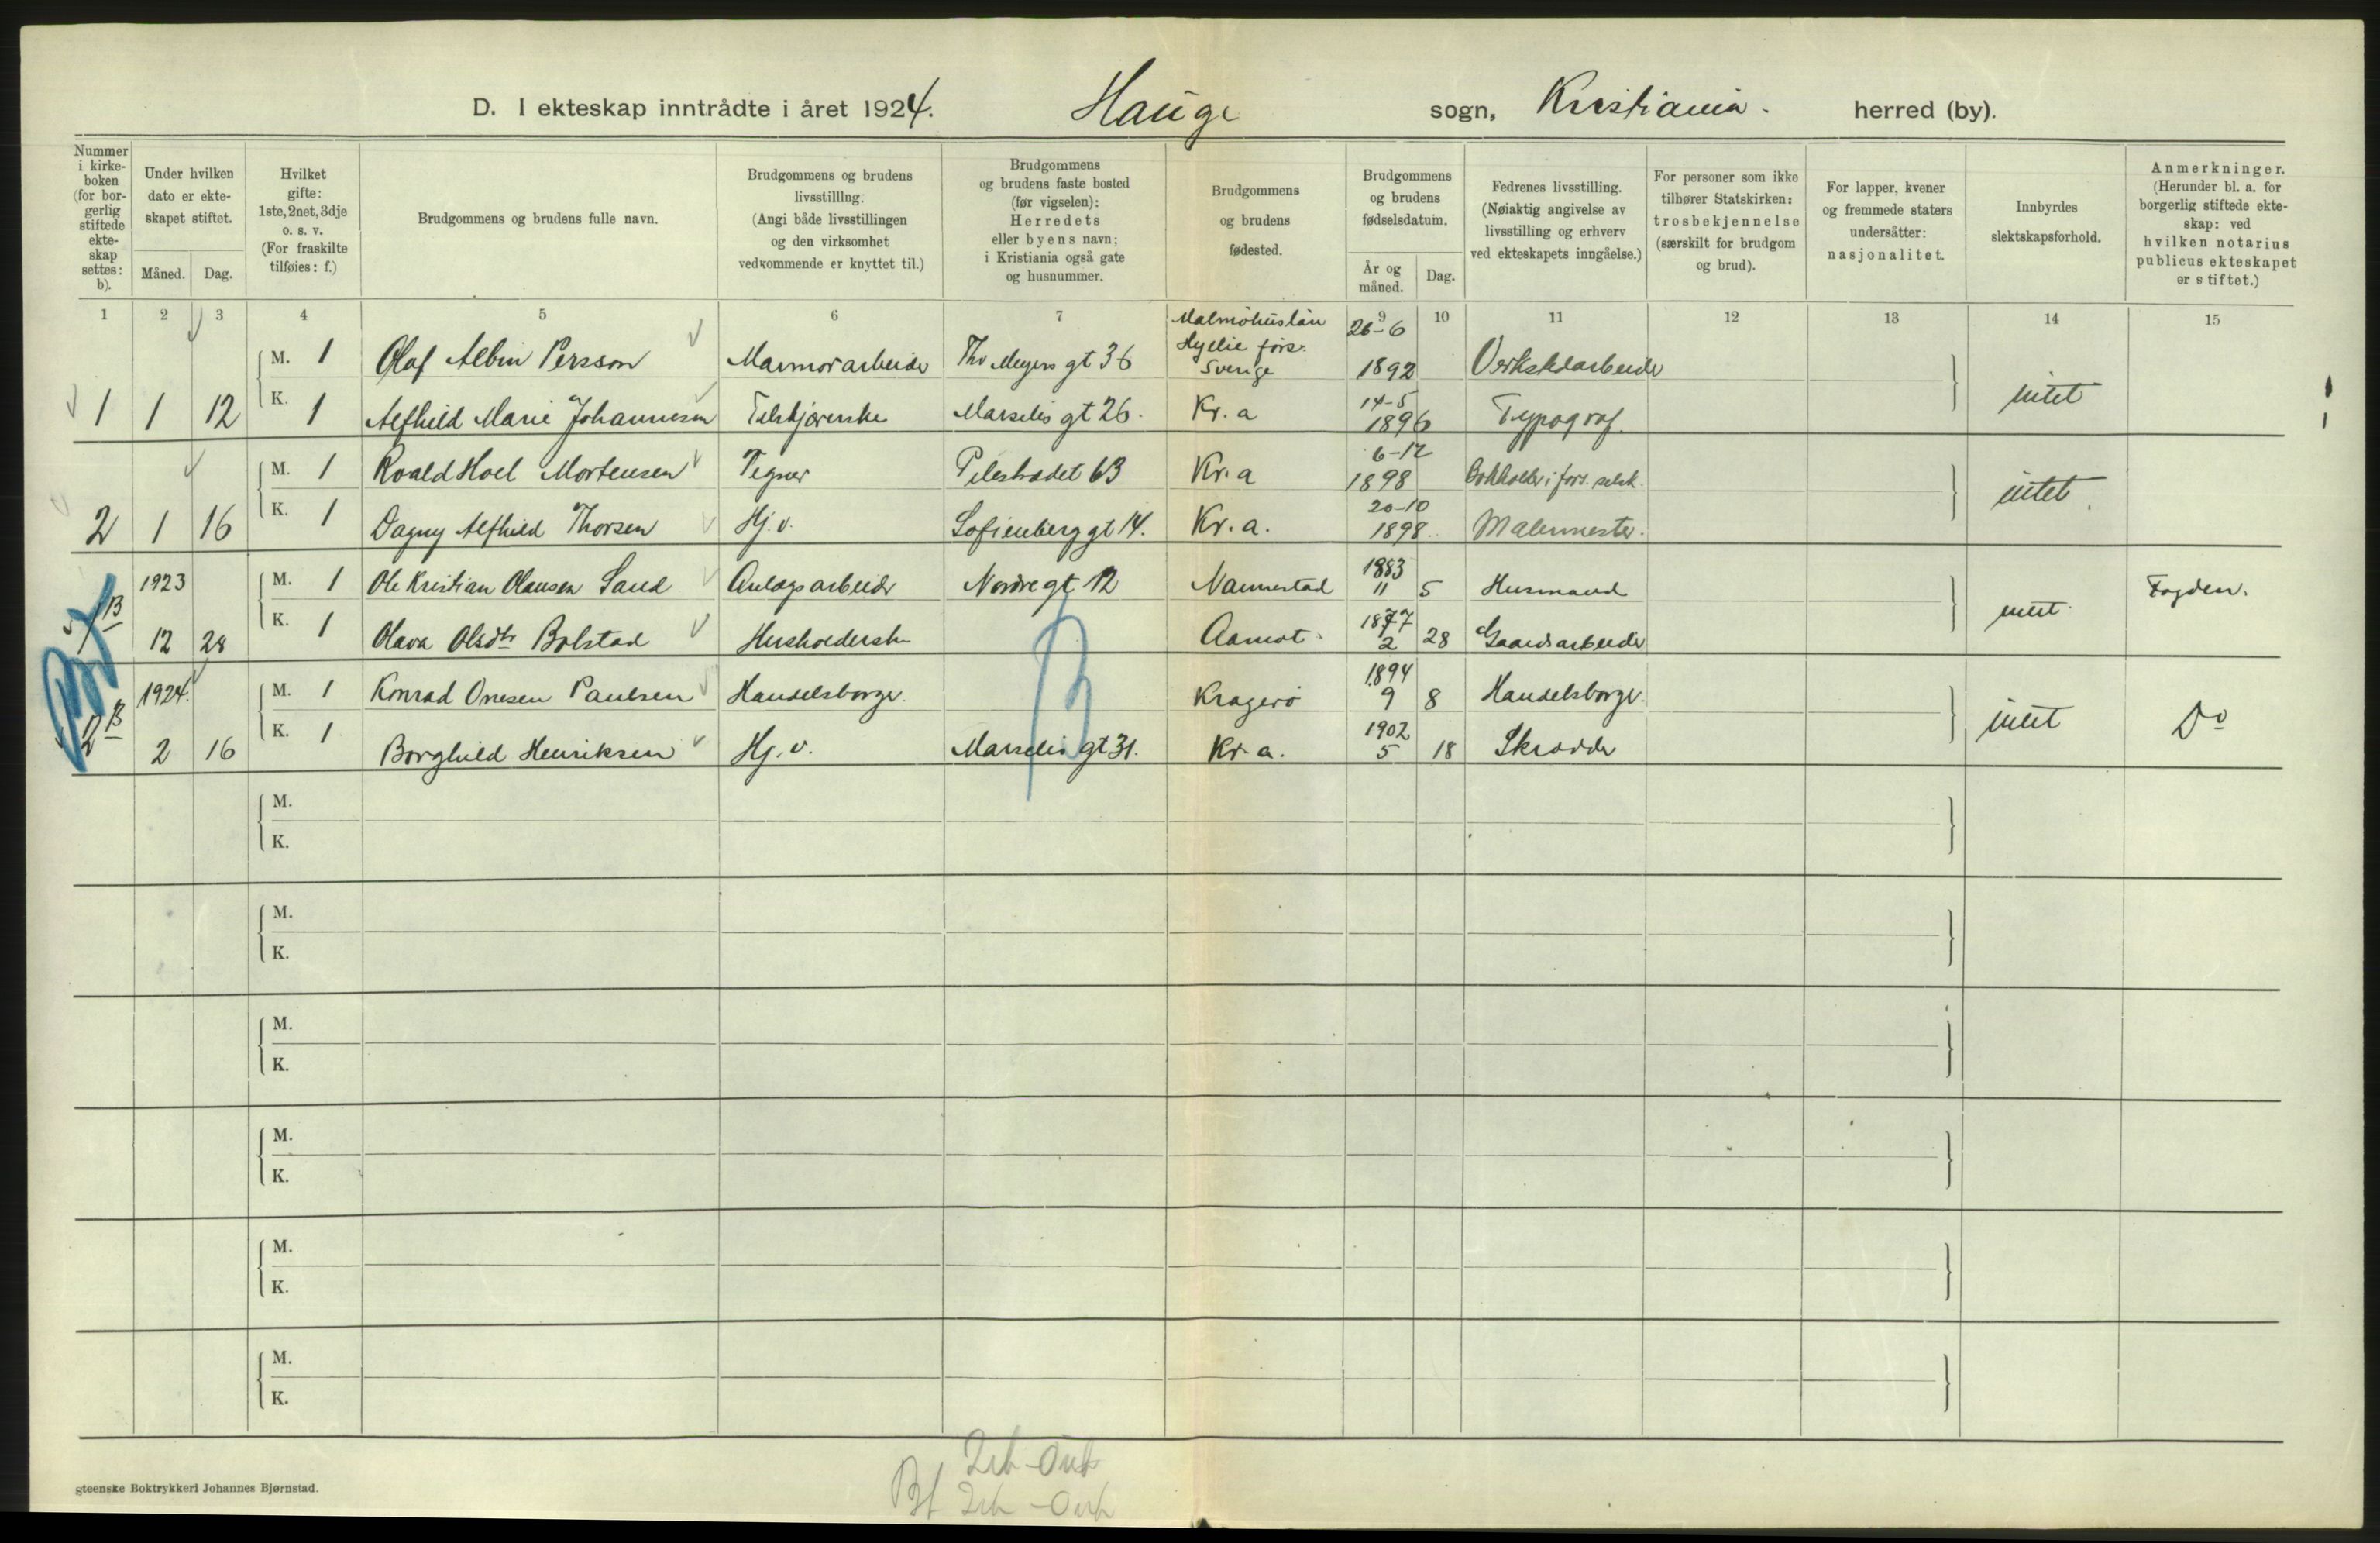 D. I ekteskap inntrådte i året 1924. Hauge sogn, Kristiania. herred (by).
Nummer i kirke-boken (for bor-gerlig stiftede ekte-skap settes: b).
Under hvilken dato er ekte-skapet stiftet.
Måned. Dag.
Hvilket gifte: 1ste, 2net, 3dje o. s. v. (For fraskilte tilføies: f.)
Brudgommens og brudens fulle navn.
Brudgommens og brudens livsstilling. (Angi både livsstillingen og den virksomhet vedkommende er knyttet til.)
Brudgommens og brudens faste bosted (før vigselen): Herredets eller byens navn; i Kristiania også gate og husnummer.
Brudgommens og brudens fødested.
Brudgommens og brudens fødselsdatum.
År og måned. Dag.
Fedrenes livsstilling. (Nøiaktig angivelse av livsstilling og erhverv ved ekteskapets inngåelse.)
For personer som ikke tilhører Statskirken: trosbekjennelse (særskilt for brudgom og brud).
For lapper, kvener og fremmede staters undersåtter: nasjonalitet.
Innbyrdes slektskapsforhold.
Anmerkninger. (Herunder bl. a. for borgerlig stiftede ekte-skap: ved hvilken notarius publicus ekteskapet er stiftet.)
1 2 3 4 5 6 7 9 10 11 12 13 14 15
M. 1 Olaf Albin Persson Marmorarbeider Thv Meyers gt 36 Malmöhuslän Hyllie förs. Sverige 26-6 1892 Verkstedarbeider
1 1 12 K. 1 Alfhild Marie Johannesen Tilskjærerske Marselis gt 26. Kr. a 14-5 1896 Typograf. intet
M. 1 Roald Hoel Mortensen Tegner Pilestrædet 63 Kr. a 6-12 1898 Bokholder i fors. selsk.
2 1 16 K. 1 Dagny Alfhild Thorsen Hj. v. Sofienberg gt 14. Kr. a. 20-10 1898. Malermester. intet.
1923 M. 1 Ole Kristian Olausen Sand Anlægsarbeider Nordregt 12 Nannestad 1883 11 5 Husmand Fogden.
1 B 12 28 K. 1 Olava Olsdtr Bolstad Husholderske Aamot 1877 2 28 Gaardsarbeider intet
1924. M. 1 Konrad Onesen Paulsen Handelsborger. Kragerø 1894 9 8 Handelsborger.
2 B 2 16 K. 1 Borghild Henriksen Hj. v. Marselis gt 31. Kr. a. 1902 5 18 Skrædder intet Do
B
M.
K.
M.
K.
M.
K.
M.
K.
M.
K.
M.
K.
gteenske Boktrykkeri Johannes Bjørnstad.